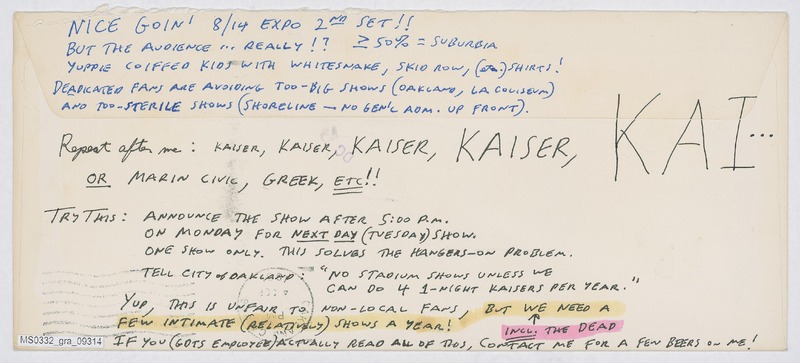 NICE GOIN' 8/14 EXPO 2ND SET!!
BUT THE AUDIENCE ... REALLY!? ≥ 50% = SUBURBIA
YUPPIE COIFFED KIDS WITH WHITESNAKE, SKID ROW, (etc.) SHIRTS!
DEADICATED FANS ARE AVOIDING TOO-BIG SHOWS (OAKLAND, LA COLISEUM)
AND TOO-STERILE SHOWS (SHORELINE — NO GEN'L ADM. UP FRONT).
Repeat after me: KAISER, KAISER, KAISER, KAISER, KAI...
OR MARIN CIVIC, GREEK, ETC!!
TRY THIS: ANNOUNCE THE SHOW AFTER 5:00 P.M.
ON MONDAY FOR NEXT DAY (TUESDAY) SHOW.
ONE SHOW ONLY. THIS SOLVES THE HANGERS-ON PROBLEM.
TELL CITY OF OAKLAND: "NO STADIUM SHOWS UNLESS WE
CAN DO 4 1-NIGHT KAISERS PER YEAR."
YUP, THIS IS UNFAIR TO NON-LOCAL FANS, BUT WE NEED A
FEW INTIMATE (RELATIVELY) SHOWS A YEAR! INCL. THE DEAD
IF YOU (GDTS EMPLOYEE) ACTUALLY READ ALL OF THIS, CONTACT ME FOR A FEW BEERS ON ME!
MS0332_gra_09314